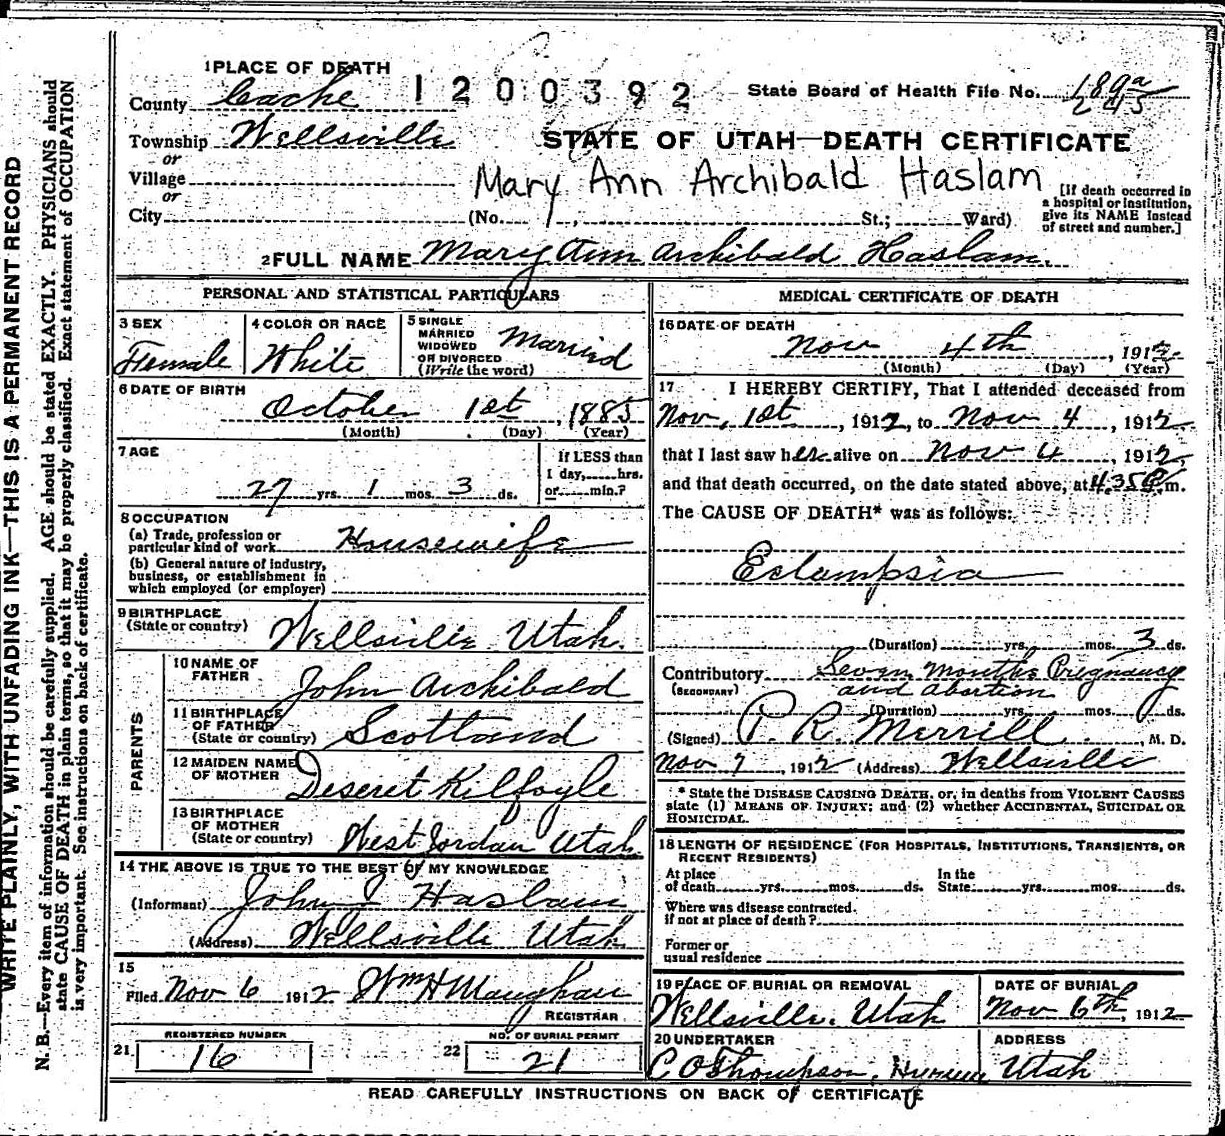 WRITE PLAINLY, WITH UNFADING INK—THIS IS A PERMANENT RECORD
N. B.—Every item of information should be carefully supplied. AGE should be stated EXACTLY. PHYSICIANS should
state CAUSE OF DEATH in plain terms, so that it may be properly classified. Exact statement of OCCUPATION
is very important. See instructions on back of certificate.
1 PLACE OF DEATH
1200392
State Board of Health File No. 189a
245
County Cache
Township Wellsville
STATE OF UTAH—DEATH CERTIFICATE
or
Village
Mary Ann Archibald Haslam
or
City (No. , St.; Ward)
[If death occurred in
a hospital or institution,
give its NAME instead
of street and number.]
2 FULL NAME Mary Ann Archibald Haslam.
PERSONAL AND STATISTICAL PARTICULARS
3 SEX
Female
4 COLOR OR RACE
White
5 SINGLE
MARRIED
WIDOWED
OR DIVORCED
(Write the word)
Married
6 DATE OF BIRTH
October 1st, 1885
(Month) (Day) (Year)
7 AGE
27 yrs. 1 mos. 3 ds.
If LESS than
1 day, hrs.
or min.?
8 OCCUPATION
(a) Trade, profession or
particular kind of work Housewife
(b) General nature of industry,
business, or establishment in
which employed (or employer)
9 BIRTHPLACE
(State or country) Wellsville Utah.
PARENTS
10 NAME OF
FATHER John Archibald
11 BIRTHPLACE
OF FATHER
(State or country) Scotland
12 MAIDEN NAME
OF MOTHER Deseret Kilfoyle
13 BIRTHPLACE
OF MOTHER
(State or country) West Jordan Utah
14 THE ABOVE IS TRUE TO THE BEST OF MY KNOWLEDGE
(Informant) John Haslam
(Address) Wellsville Utah
15
Filed Nov 6 1912 Wm H Maughan
REGISTRAR
REGISTERED NUMBER
21 16
NO. OF BURIAL PERMIT
22 21
MEDICAL CERTIFICATE OF DEATH
16 DATE OF DEATH
Nov 4th, 1912
(Month) (Day) (Year)
17 I HEREBY CERTIFY, That I attended deceased from
Nov, 1st, 1912, to Nov 4, 1912
that I last saw her alive on Nov 4, 1912,
and that death occurred, on the date stated above, at 4.35 P. m.
The CAUSE OF DEATH* was as follows:
Eclampsia
(Duration) yrs. mos. 3 ds.
Contributory Seven months Pregnancy
(SECONDARY) and abortion
(Duration) yrs. mos. ds.
(Signed) P. R. Merrill, M. D.
Nov 7, 1912 (Address) Wellsville
* State the DISEASE CAUSING DEATH, or, in deaths from VIOLENT CAUSES
state (1) MEANS OF INJURY; and (2) whether ACCIDENTAL, SUICIDAL OR
HOMICIDAL.
18 LENGTH OF RESIDENCE (FOR HOSPITALS, INSTITUTIONS, TRANSIENTS, OR
RECENT RESIDENTS)
At place
of death yrs. mos. ds.
In the
State: yrs. mos. ds.
Where was disease contracted.
if not at place of death?
Former or
usual residence
19 PLACE OF BURIAL OR REMOVAL
Wellsville. Utah
DATE OF BURIAL
Nov 6th, 1912
20 UNDERTAKER
C O Thompson, Hyrum
ADDRESS
Utah
READ CAREFULLY INSTRUCTIONS ON BACK OF CERTIFICATE